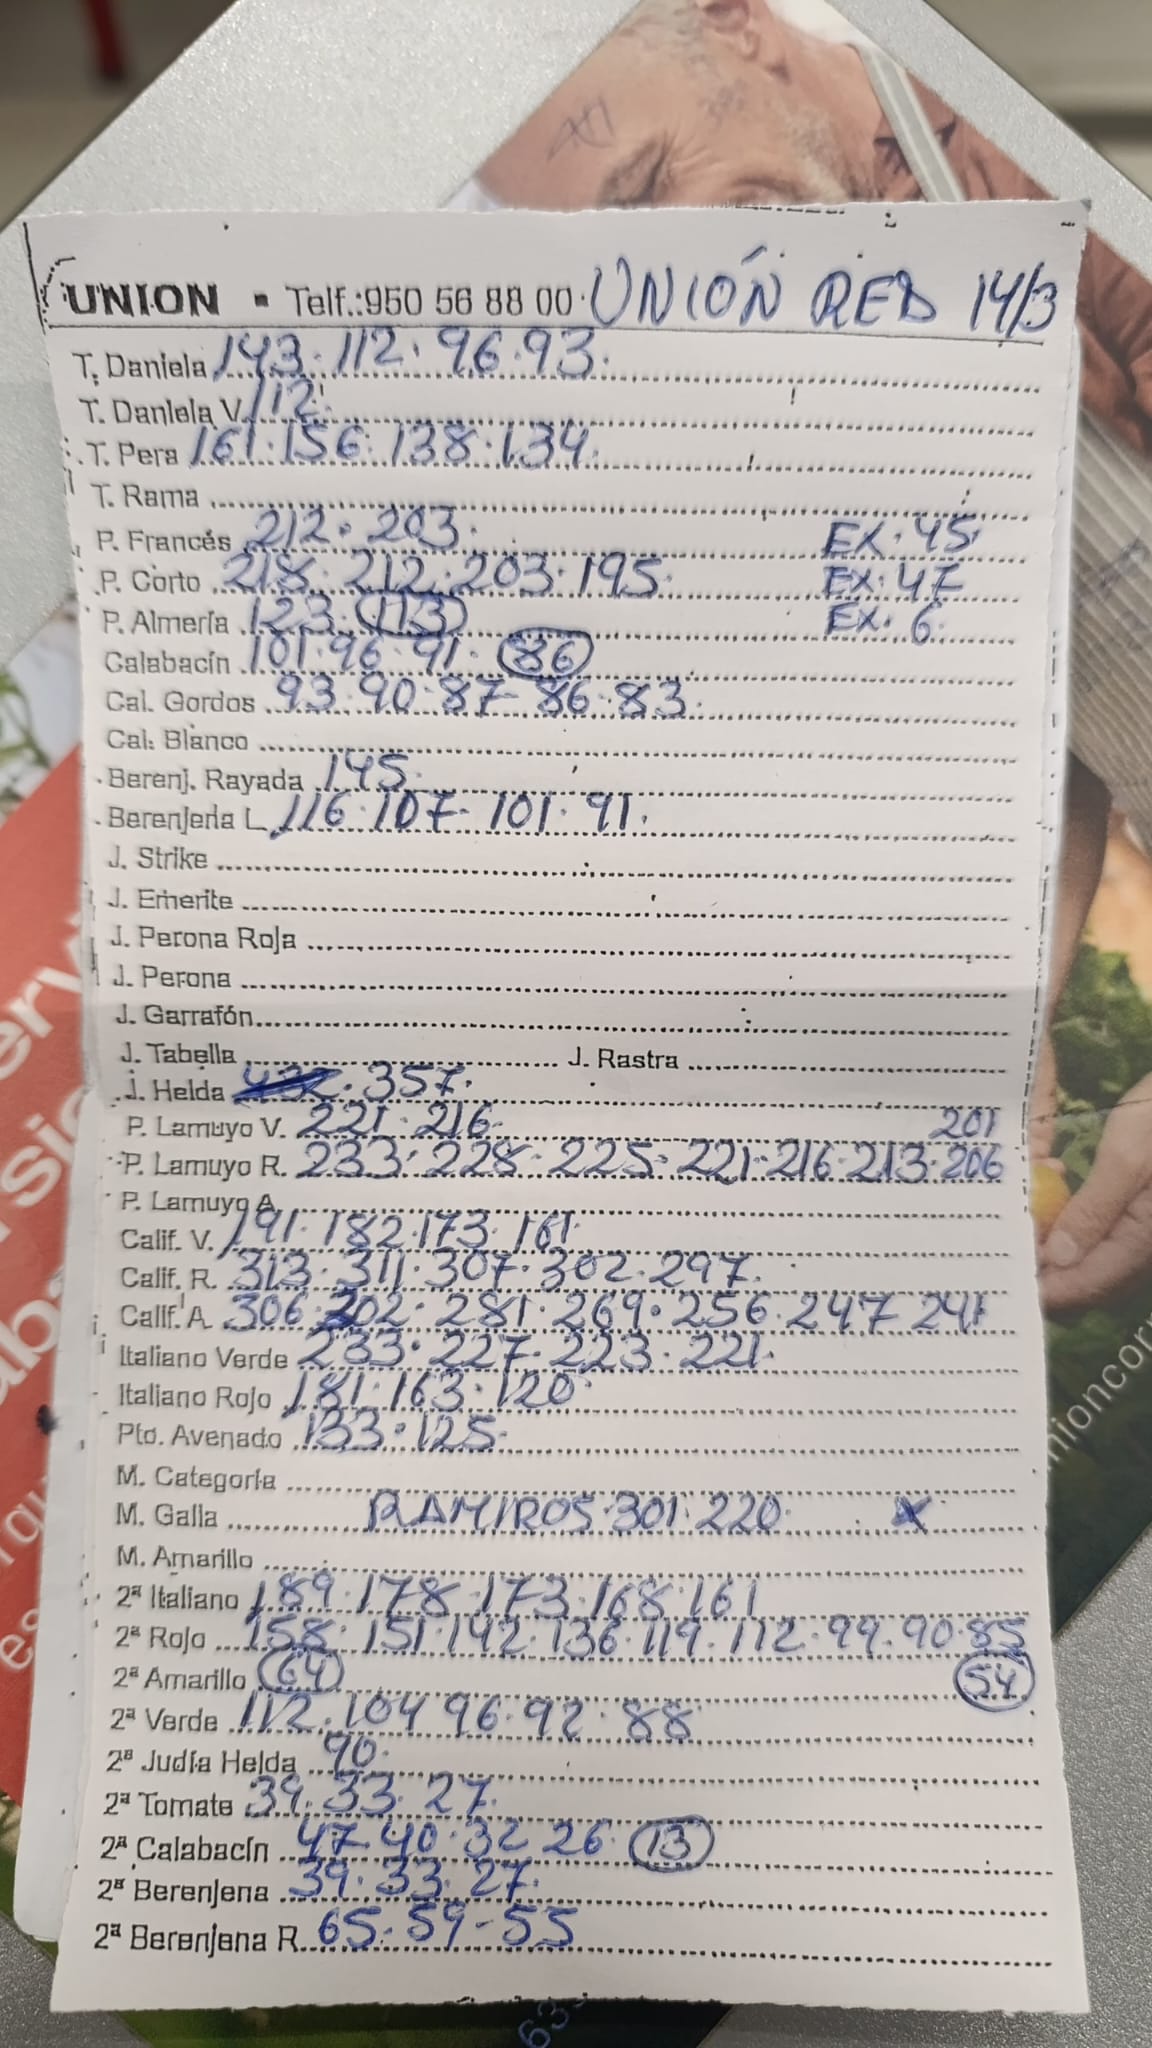 UNION ▪ Telf.:950 56 88 00 · UNIÓN RED 14/3
T. Daniela 143. 112. 96. 93.
T. Daniela V. 112.
T. Pera 161. 156. 138. 134.
T. Rama
P. Francés 212. 203. EX. 45
P. Corto 218. 212. 203. 195. EX. 47
P. Almería 123. 113 EX. 6.
Calabacín 101. 96. 91. 86
Cal. Gordos 93. 90. 87 86. 83.
Cal. Blanco
Berenj. Rayada 145.
Berenjena L. 116. 107. 101. 91.
J. Strike
J. Emerite
J. Perona Roja
J. Perona
J. Garrafón
J. Tabella J. Rastra
J. Helda 357.
P. Lamuyo V. 221. 216. 201
P. Lamuyo R. 233. 228. 225. 221. 216. 213. 206
P. Lamuyo A.
Calif. V. 191. 182. 173. 161.
Calif. R. 313. 311. 307. 302. 297.
Calif. A. 306 281. 269. 256. 247 241
Italiano Verde 233. 227. 223. 221.
Italiano Rojo 181. 163. 120
Pto. Avenado 133. 125.
M. Categoría
M. Galla RAMIROS. 301. 220.
M. Amarillo
2ª Italiano 189. 178. 173. 168. 161
2ª Rojo 158. 151. 142. 136. 119. 112. 99. 90. 85
2ª Amarillo 64 54
2ª Verde 112. 104 96. 92. 88
2ª Judía Helda 90.
2ª Tomate 39. 33. 27.
2ª Calabacín 47. 40. 32 26. 13
2ª Berenjena 39. 33. 27.
2ª Berenjena R. 65. 59-55